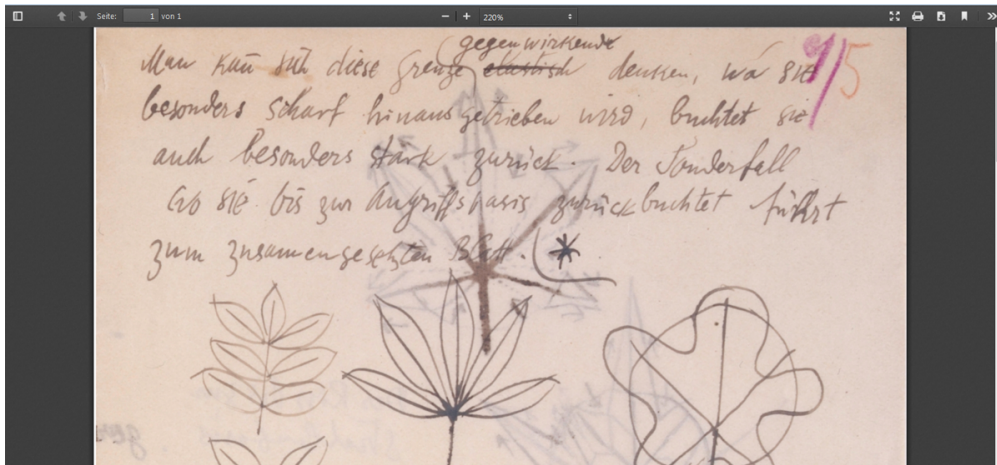 Seite: 1 von 1 220%
gegenwirkende
Man kan̄ sich diese Grenze elastisch denken, wo sie 9/5
besonders scharf hinausgetrieben wird, buchtet sie
auch besonders stark zurück. Der Sonderfall
wo sie bis zur Angriffsbasis zurückbuchtet führt
zum zusamengesetzten Blatt. *